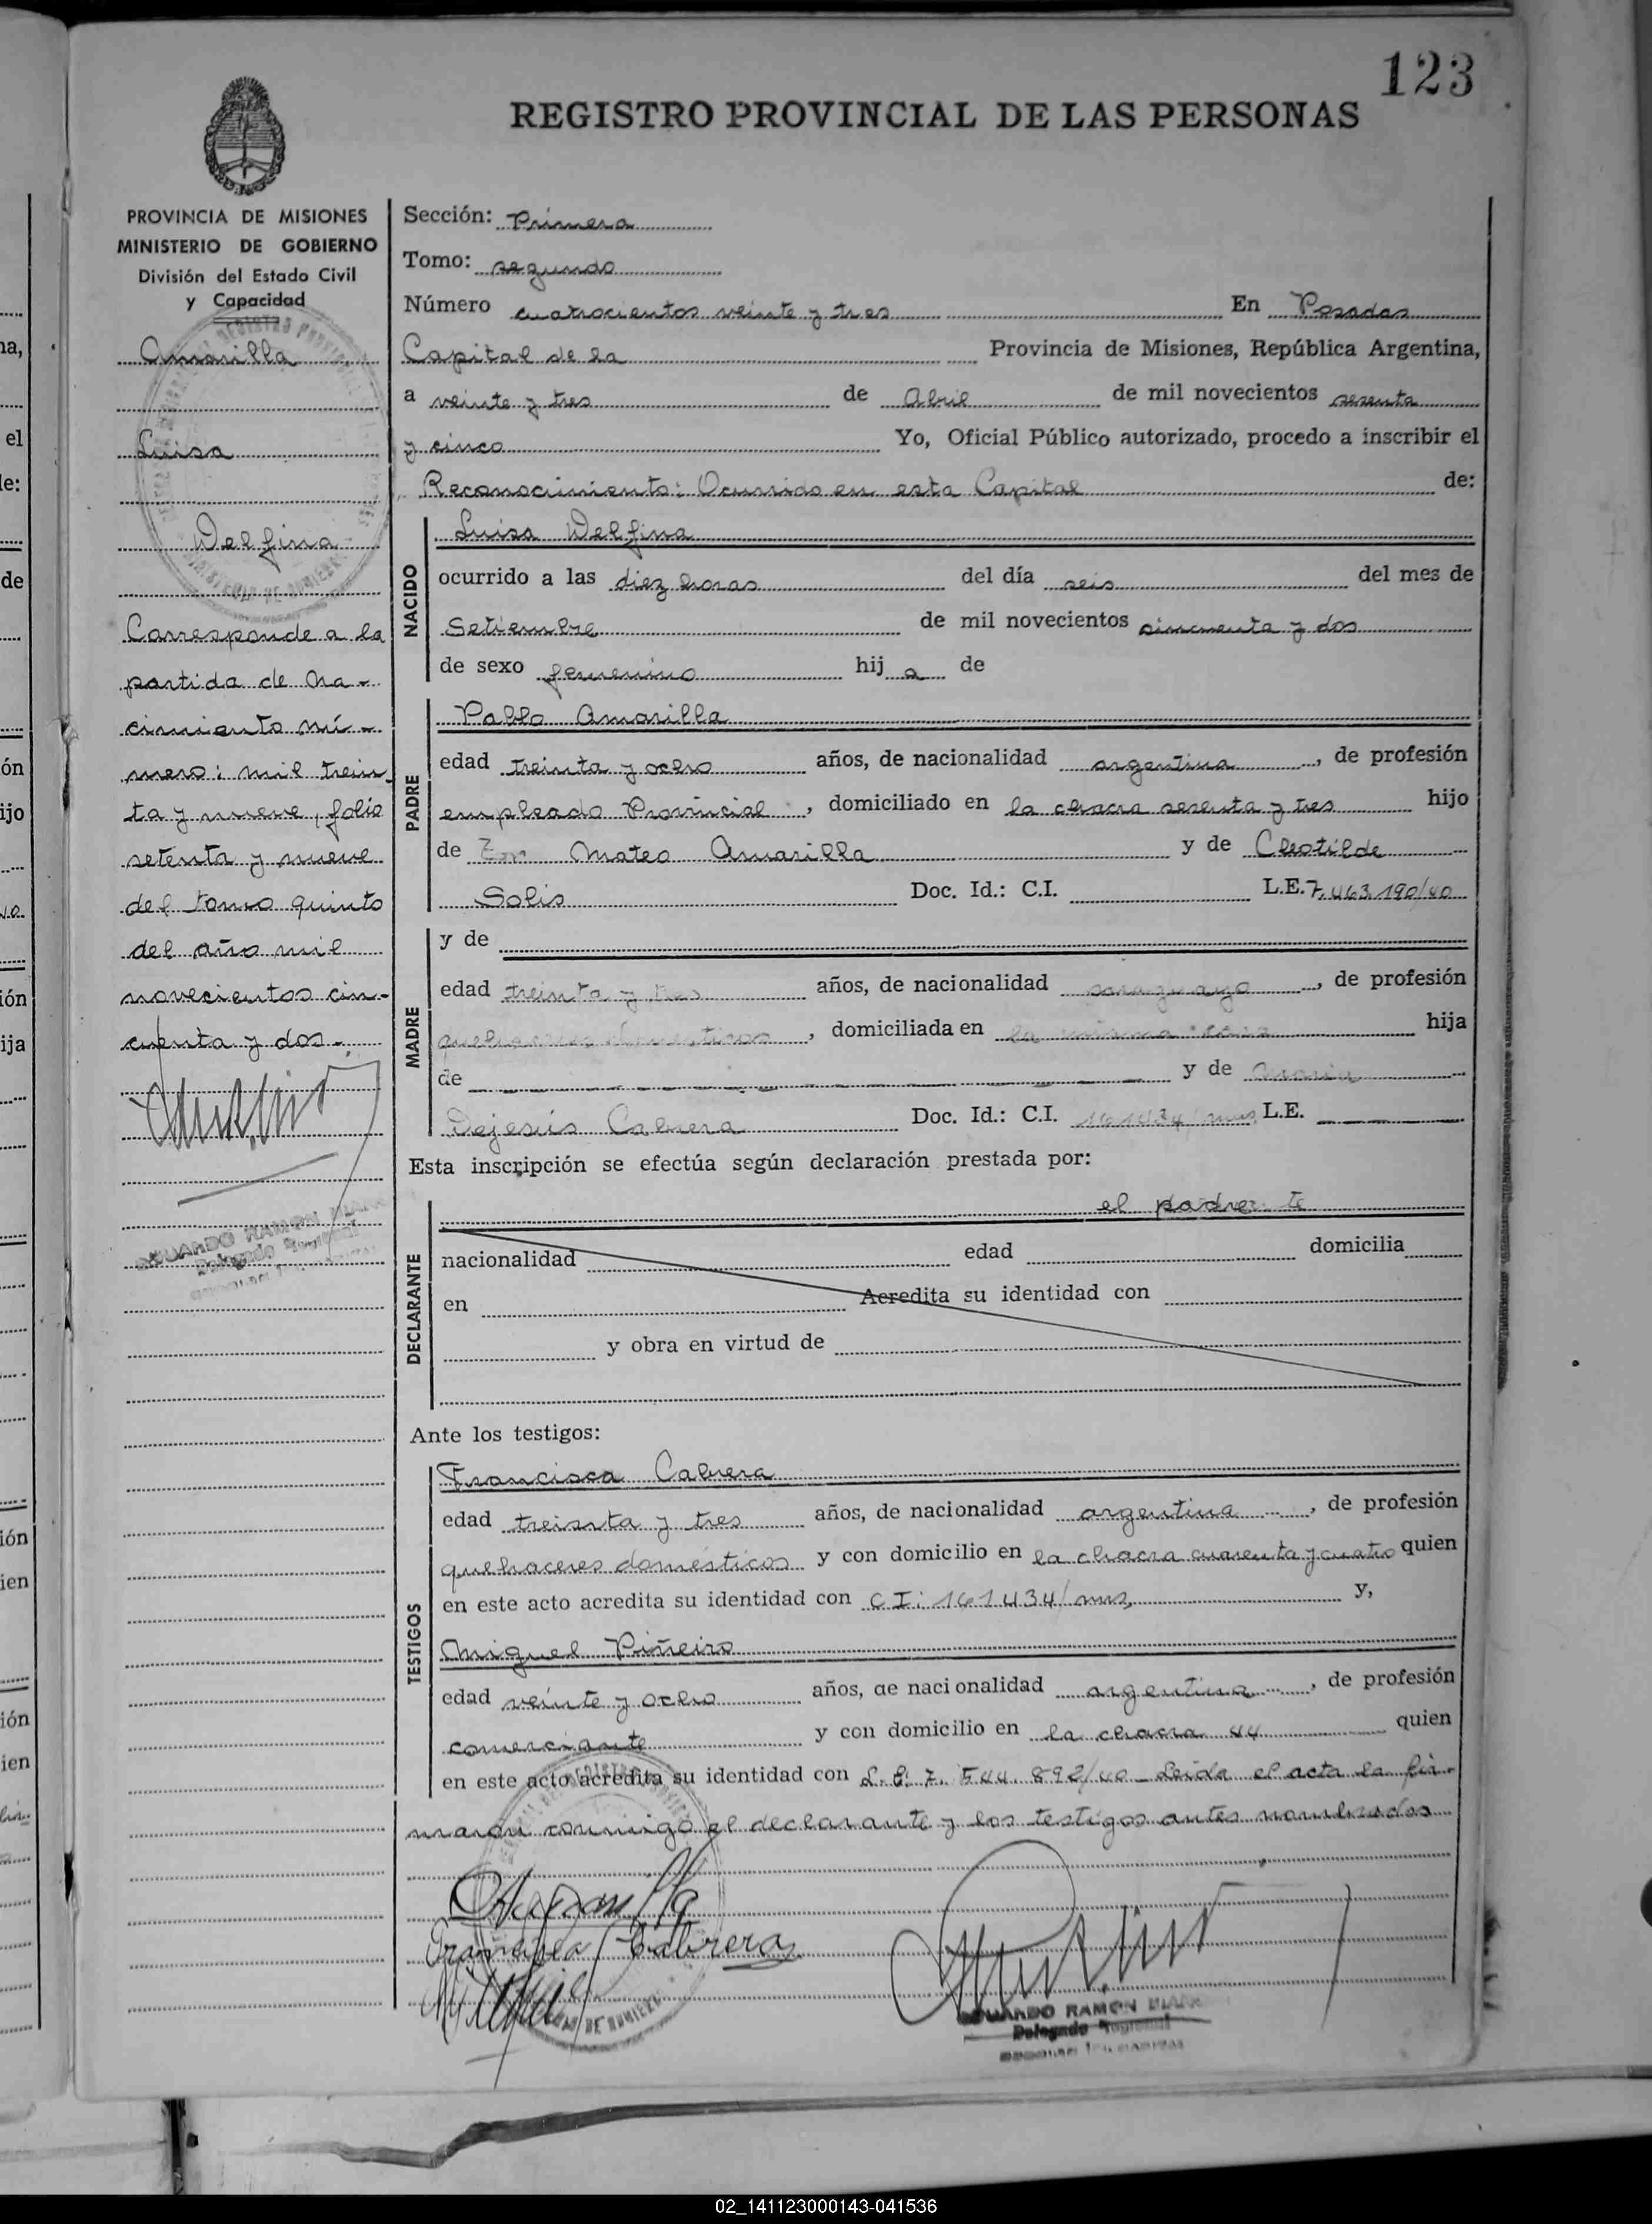 123
REGISTRO PROVINCIAL DE LAS PERSONAS
PROVINCIA DE MISIONES
MINISTERIO DE GOBIERNO
División del Estado Civil
y Capacidad
Amarilla
Luisa
Delfina
Corresponde a la
partida de na-
cimiento nú-
mero: mil trein
ta y nueve, folio
setenta y nueve
del tomo quinto
del año mil
novecientos cin-
cuenta y dos-.
EDUARDO RAMON
Delegado Regional
Sección: Primera
Tomo: segundo
Número cuatrocientos veinte y tres En Posadas
Capital de la Provincia de Misiones, República Argentina,
a veinte y tres de Abril de mil novecientos sesenta
y cinco Yo, Oficial Público autorizado, procedo a inscribir el
Reconocimiento: Ocurrido en esta Capital de:
NACIDO
Luisa Delfina
ocurrido a las diez horas del día seis del mes de
Setiembre de mil novecientos cincuenta y dos
de sexo femenino hij a de
PADRE
Pablo Amarilla
edad treinta y ocho años, de nacionalidad argentina, de profesión
empleado Provincial, domiciliado en la chacra sesenta y tres hijo
de Mateo Amarilla y de Cleotilde
Solis Doc. Id.: C.I. L.E. 7.463.190/40
MADRE
y de
edad treinta y tres años, de nacionalidad paraguaya, de profesión
quehaceres domesticos, domiciliada en la misma hija
de y de Maria
Dejesús Cabrera Doc. Id.: C.I. 161434/mns. L.E.
Esta inscripción se efectúa según declaración prestada por:
DECLARANTE
el padre
nacionalidad edad domicilia
en Acredita su identidad con
y obra en virtud de
Ante los testigos:
TESTIGOS
Francisca Cabrera
edad treinta y tres años, de nacionalidad argentina, de profesión
quehaceres domésticos y con domicilio en la chacra cuarenta y cuatro quien
en este acto acredita su identidad con CI: 161434/mns, y,
Miguel Piñeiro
edad veinte y ocho años, de nacionalidad argentina, de profesión
comerciante y con domicilio en la chacra 44 quien
en este acto acredita su identidad con L.E. 7.544.892/40 - Leida el acta la fir-
maron conmigo el declarante y los testigos antes nombrados
Francisca Cabrera
EDUARDO RAMON
Delegado Regional
02_141123000143-041536